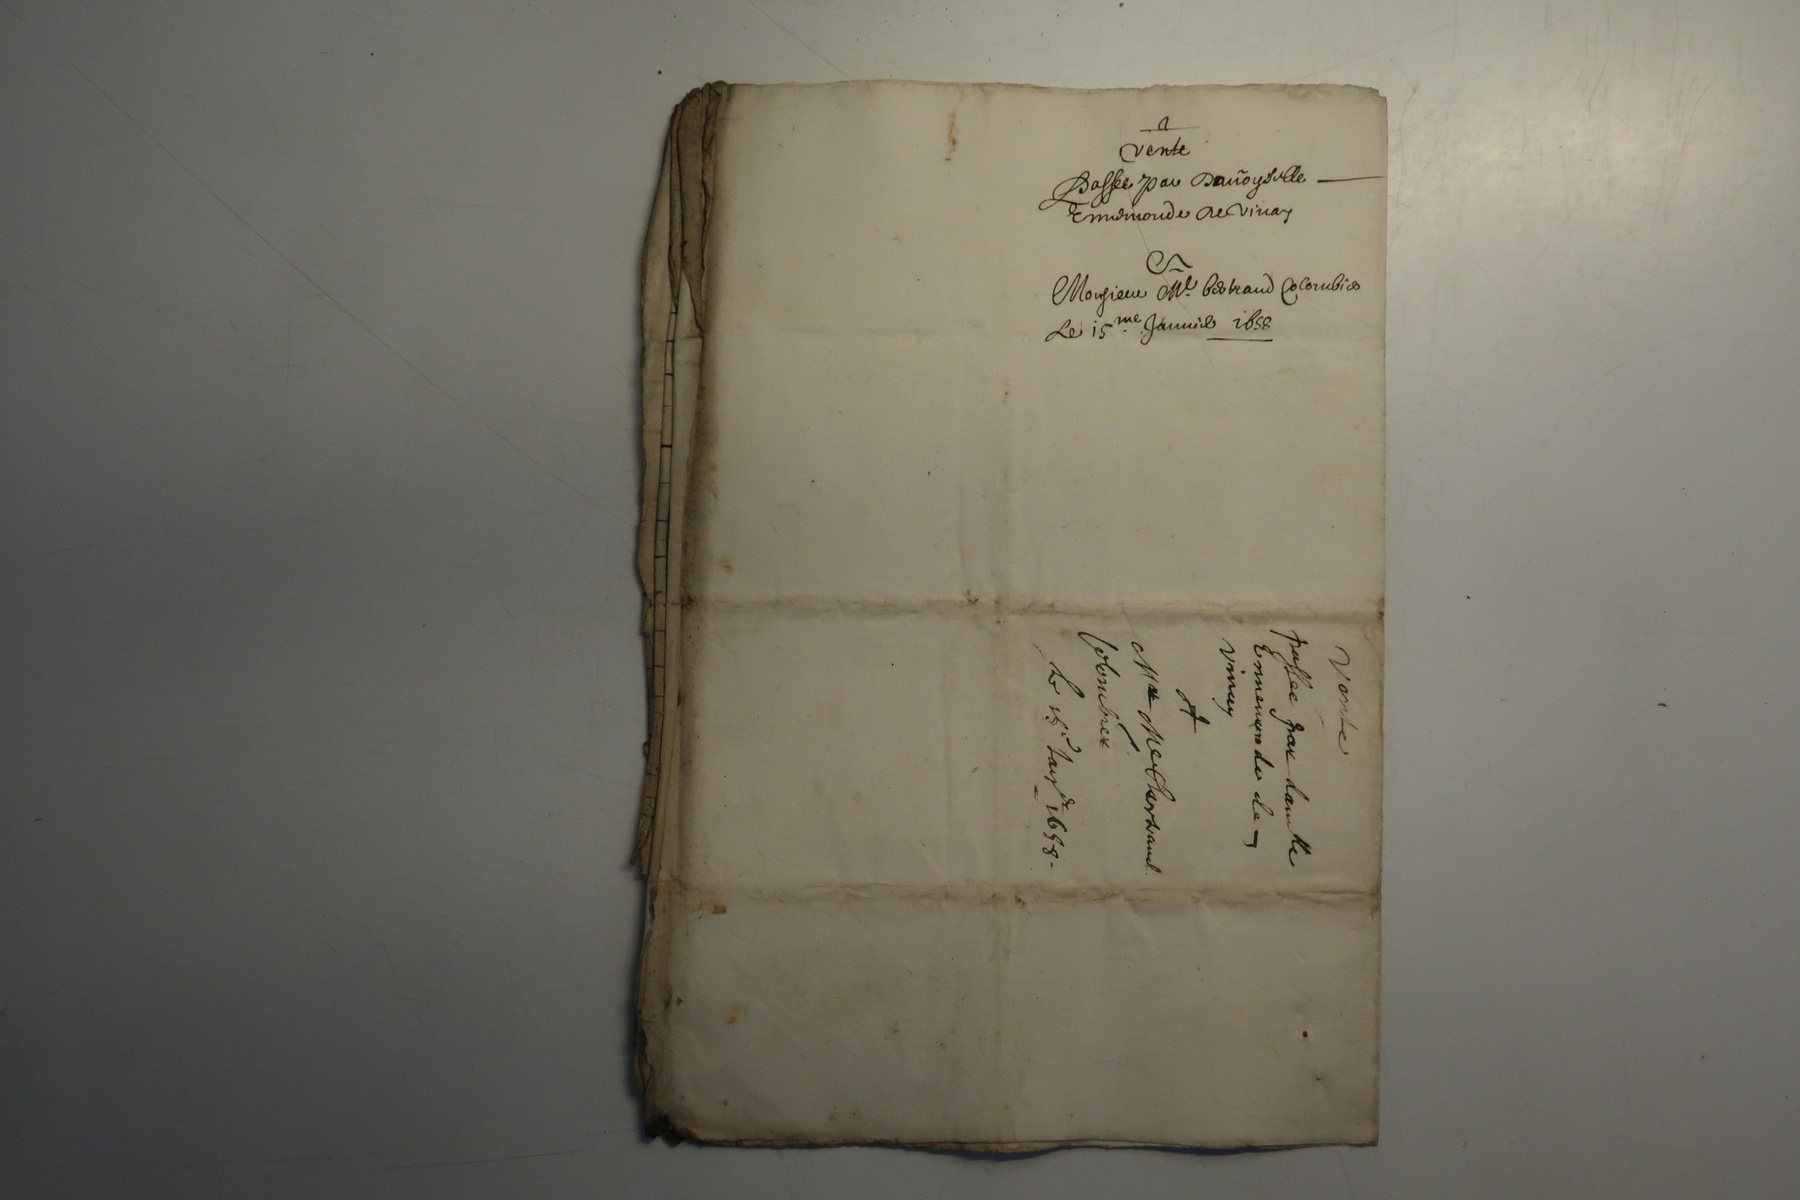 Vente
Passée par Damoyselle
Ennemonde de Vinay
A
Monsieur Me bertrand Colombier
Le 15me Janvier 1658
Vante
passee par damlle
Ennemonde de
Vinay
A
Mr Me Bertrand
Colombier
le 15e Janer 1658.